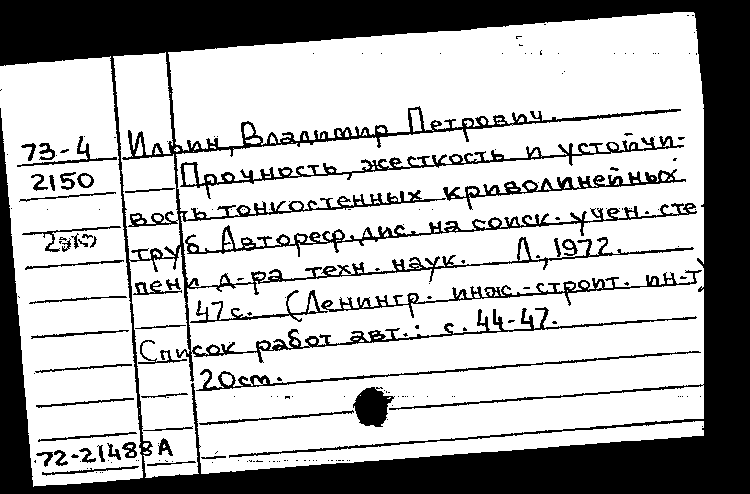 73-4 Ильин, Владимир Петрович.
2150 Прочность, жесткость и устойчи-
вость тонкостенных криволинейных
труб. Автореф. дис. на соиск. учен. сте-
пени д-ра техн. наук. Л., 1972.
47с. (Ленингр. инж.-строит. ин-т)
Список работ авт.: с. 44-47.
20см.
72-21488А